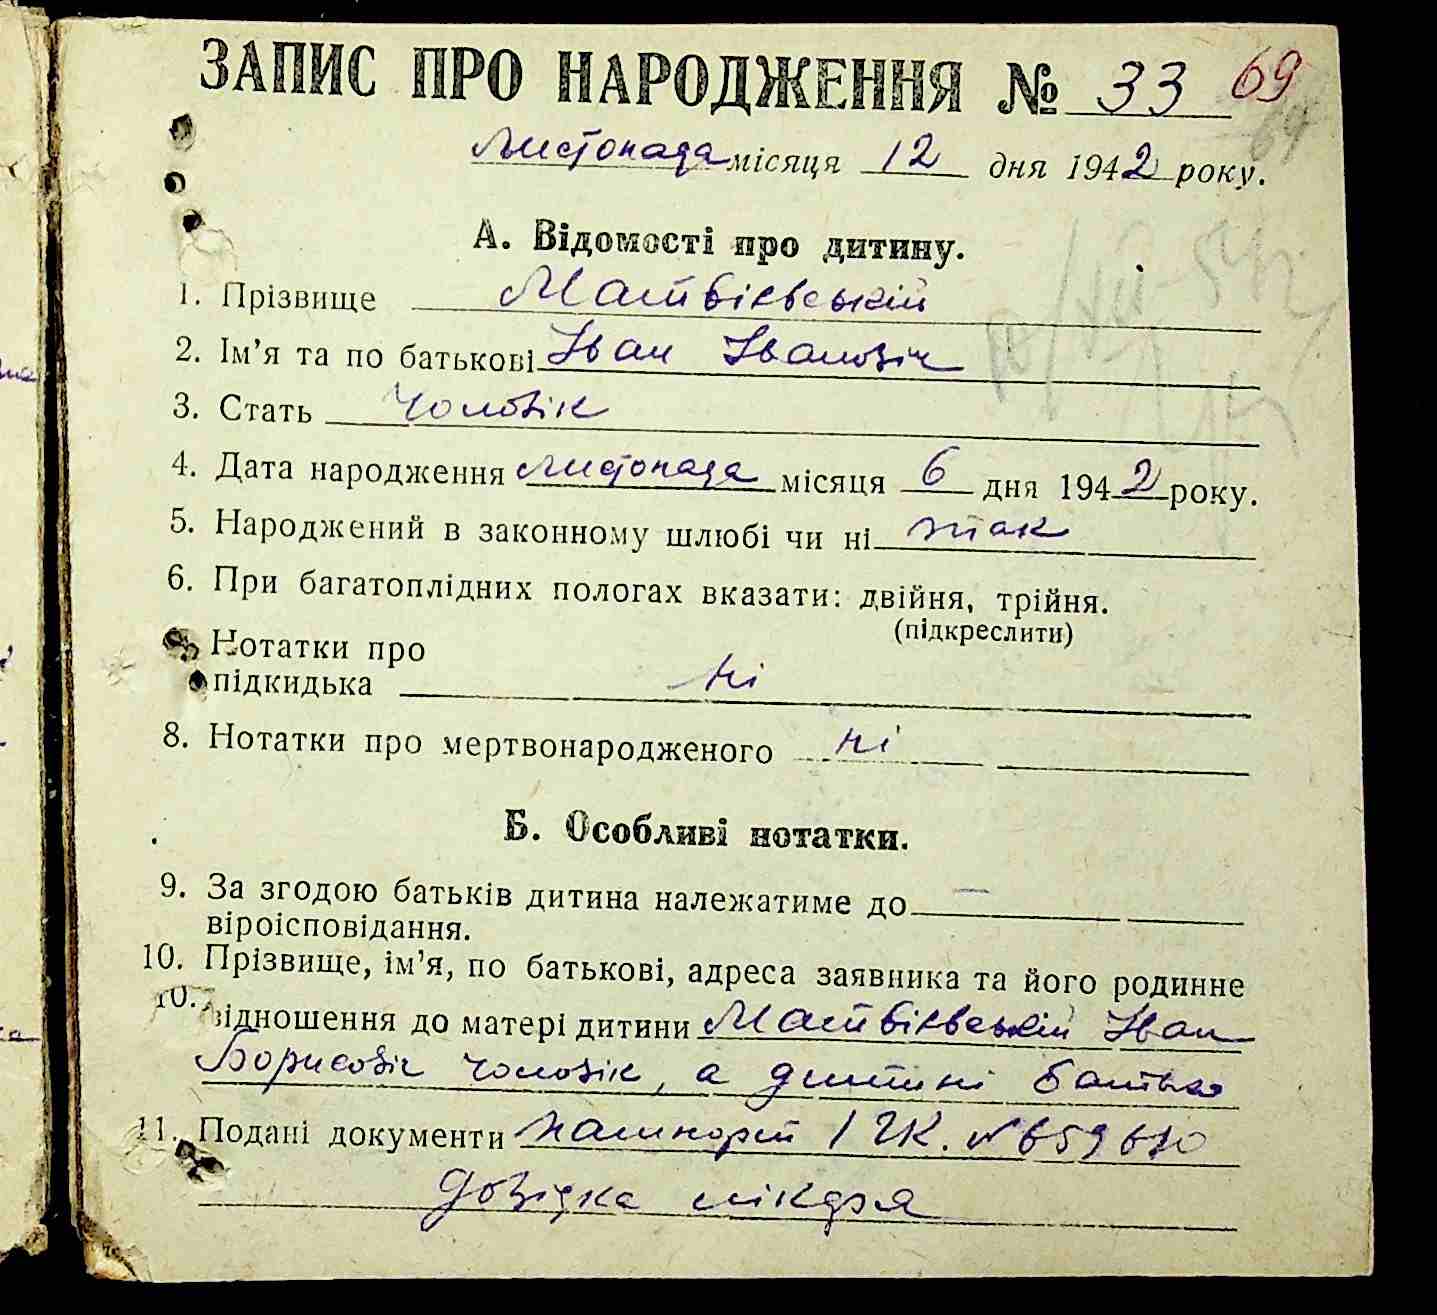 ЗАПИС ПРО НАРОДЖЕННЯ № 33 69
листопада місяця 12 дня 1942 року.
А. Відомості про дитину.
1. Прізвище Матвієвській
2. Ім'я та по батькові Іван Івановіч
3. Стать чоловік
4. Дата народження листопада місяця 6 дня 1942 року.
5. Народжений в законному шлюбі чи ні так
6. При багатоплідних пологах вказати: двійня, трійня.
(підкреслити)
Нотатки про
підкидька ні
8. Нотатки про мертвонародженого ні
Б. Особливі нотатки.
9. За згодою батьків дитина належатиме до —
віроісповідання.
10. Прізвище, ім'я, по батькові, адреса заявника та його родинне
10. відношення до матері дитини Матвієвській Іван
Борисовіч чоловік, а дитині батько
11. Подані документи пашпорт І ЧК. №659610
довідка лікаря